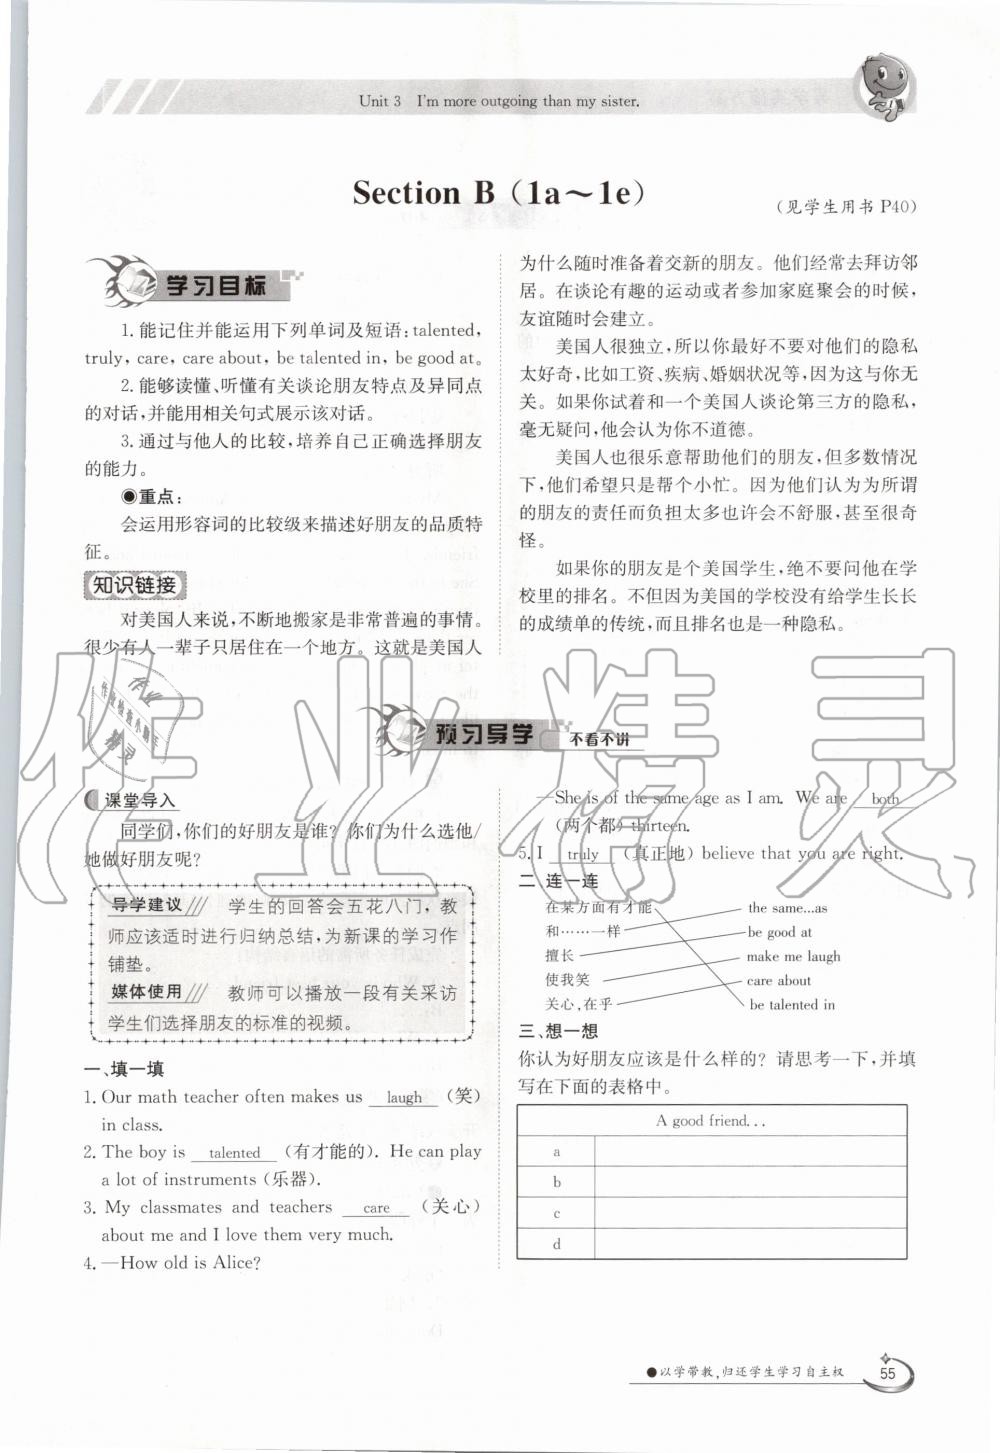 Unit 3 I'm more outgoing than my sister.
Section B（1a～1e）
（见学生用书 P40）
学习目标
1. 能记住并能运用下列单词及短语：talented,
truly, care, care about, be talented in, be good at。
2. 能够读懂、听懂有关谈论朋友特点及异同点
的对话，并能用相关句式展示该对话。
3. 通过与他人的比较，培养自己正确选择朋友
的能力。
◉重点：
会运用形容词的比较级来描述好朋友的品质特
征。
知识链接
对美国人来说，不断地搬家是非常普遍的事情。
很少有人一辈子只居住在一个地方。这就是美国人
为什么随时准备着交新的朋友。他们经常去拜访邻
居。在谈论有趣的运动或者参加家庭聚会的时候，
友谊随时会建立。
美国人很独立，所以你最好不要对他们的隐私
太好奇，比如工资、疾病、婚姻状况等，因为这与你无
关。如果你试着和一个美国人谈论第三方的隐私，
毫无疑问，他会认为你不道德。
美国人也很乐意帮助他们的朋友，但多数情况
下，他们希望只是帮个小忙。因为他们认为为所谓
的朋友的责任而负担太多也许会不舒服，甚至很奇
怪。
如果你的朋友是个美国学生，绝不要问他在学
校里的排名。不但因为美国的学校没有给学生长长
的成绩单的传统，而且排名也是一种隐私。
预习导学 不看不讲
课堂导入
同学们，你们的好朋友是谁？你们为什么选他/
她做好朋友呢？
导学建议 学生的回答会五花八门，教
师应该适时进行归纳总结，为新课的学习作
铺垫。
媒体使用 教师可以播放一段有关采访
学生们选择朋友的标准的视频。
一、填一填
1. Our math teacher often makes us laugh（笑）
in class.
2. The boy is talented（有才能的）. He can play
a lot of instruments（乐器）.
3. My classmates and teachers care（关心）
about me and I love them very much.
4. —How old is Alice?
—She is of the same age as I am. We are both
（两个都）thirteen.
5. I truly（真正地）believe that you are right.
二、连一连
在某方面有才能 the same...as
和……一样 be good at
擅长 make me laugh
使我笑 care about
关心，在乎 be talented in
三、想一想
你认为好朋友应该是什么样的？请思考一下，并填
写在下面的表格中。
A good friend...
a
b
c
d
●以学带教，归还学生学习自主权
55
作业精灵
作业
作业检查小助手
精灵